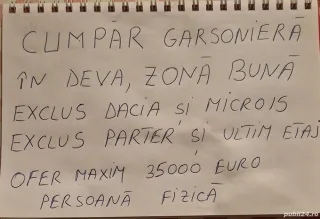 CUMPĂR GARSONIERĂ
ÎN DEVA, ZONĂ BUNĂ
EXCLUS DACIA ȘI MICRO15
EXCLUS PARTER ȘI ULTIM ETAJ
OFER MAXIM 35000 EURO
PERSOANĂ FIZICĂ
publi24.ro